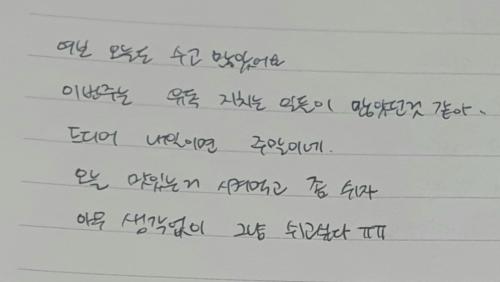 여보 오늘도 수고 많았어요
이번주는 유독 지치는 일들이 많았던것 같아.
드디어 내일이면 주말이네.
오늘 맛있는거 시켜먹고 좀 쉬자
아무 생각없이 그냥 쉬고싶다 ㅠㅠ